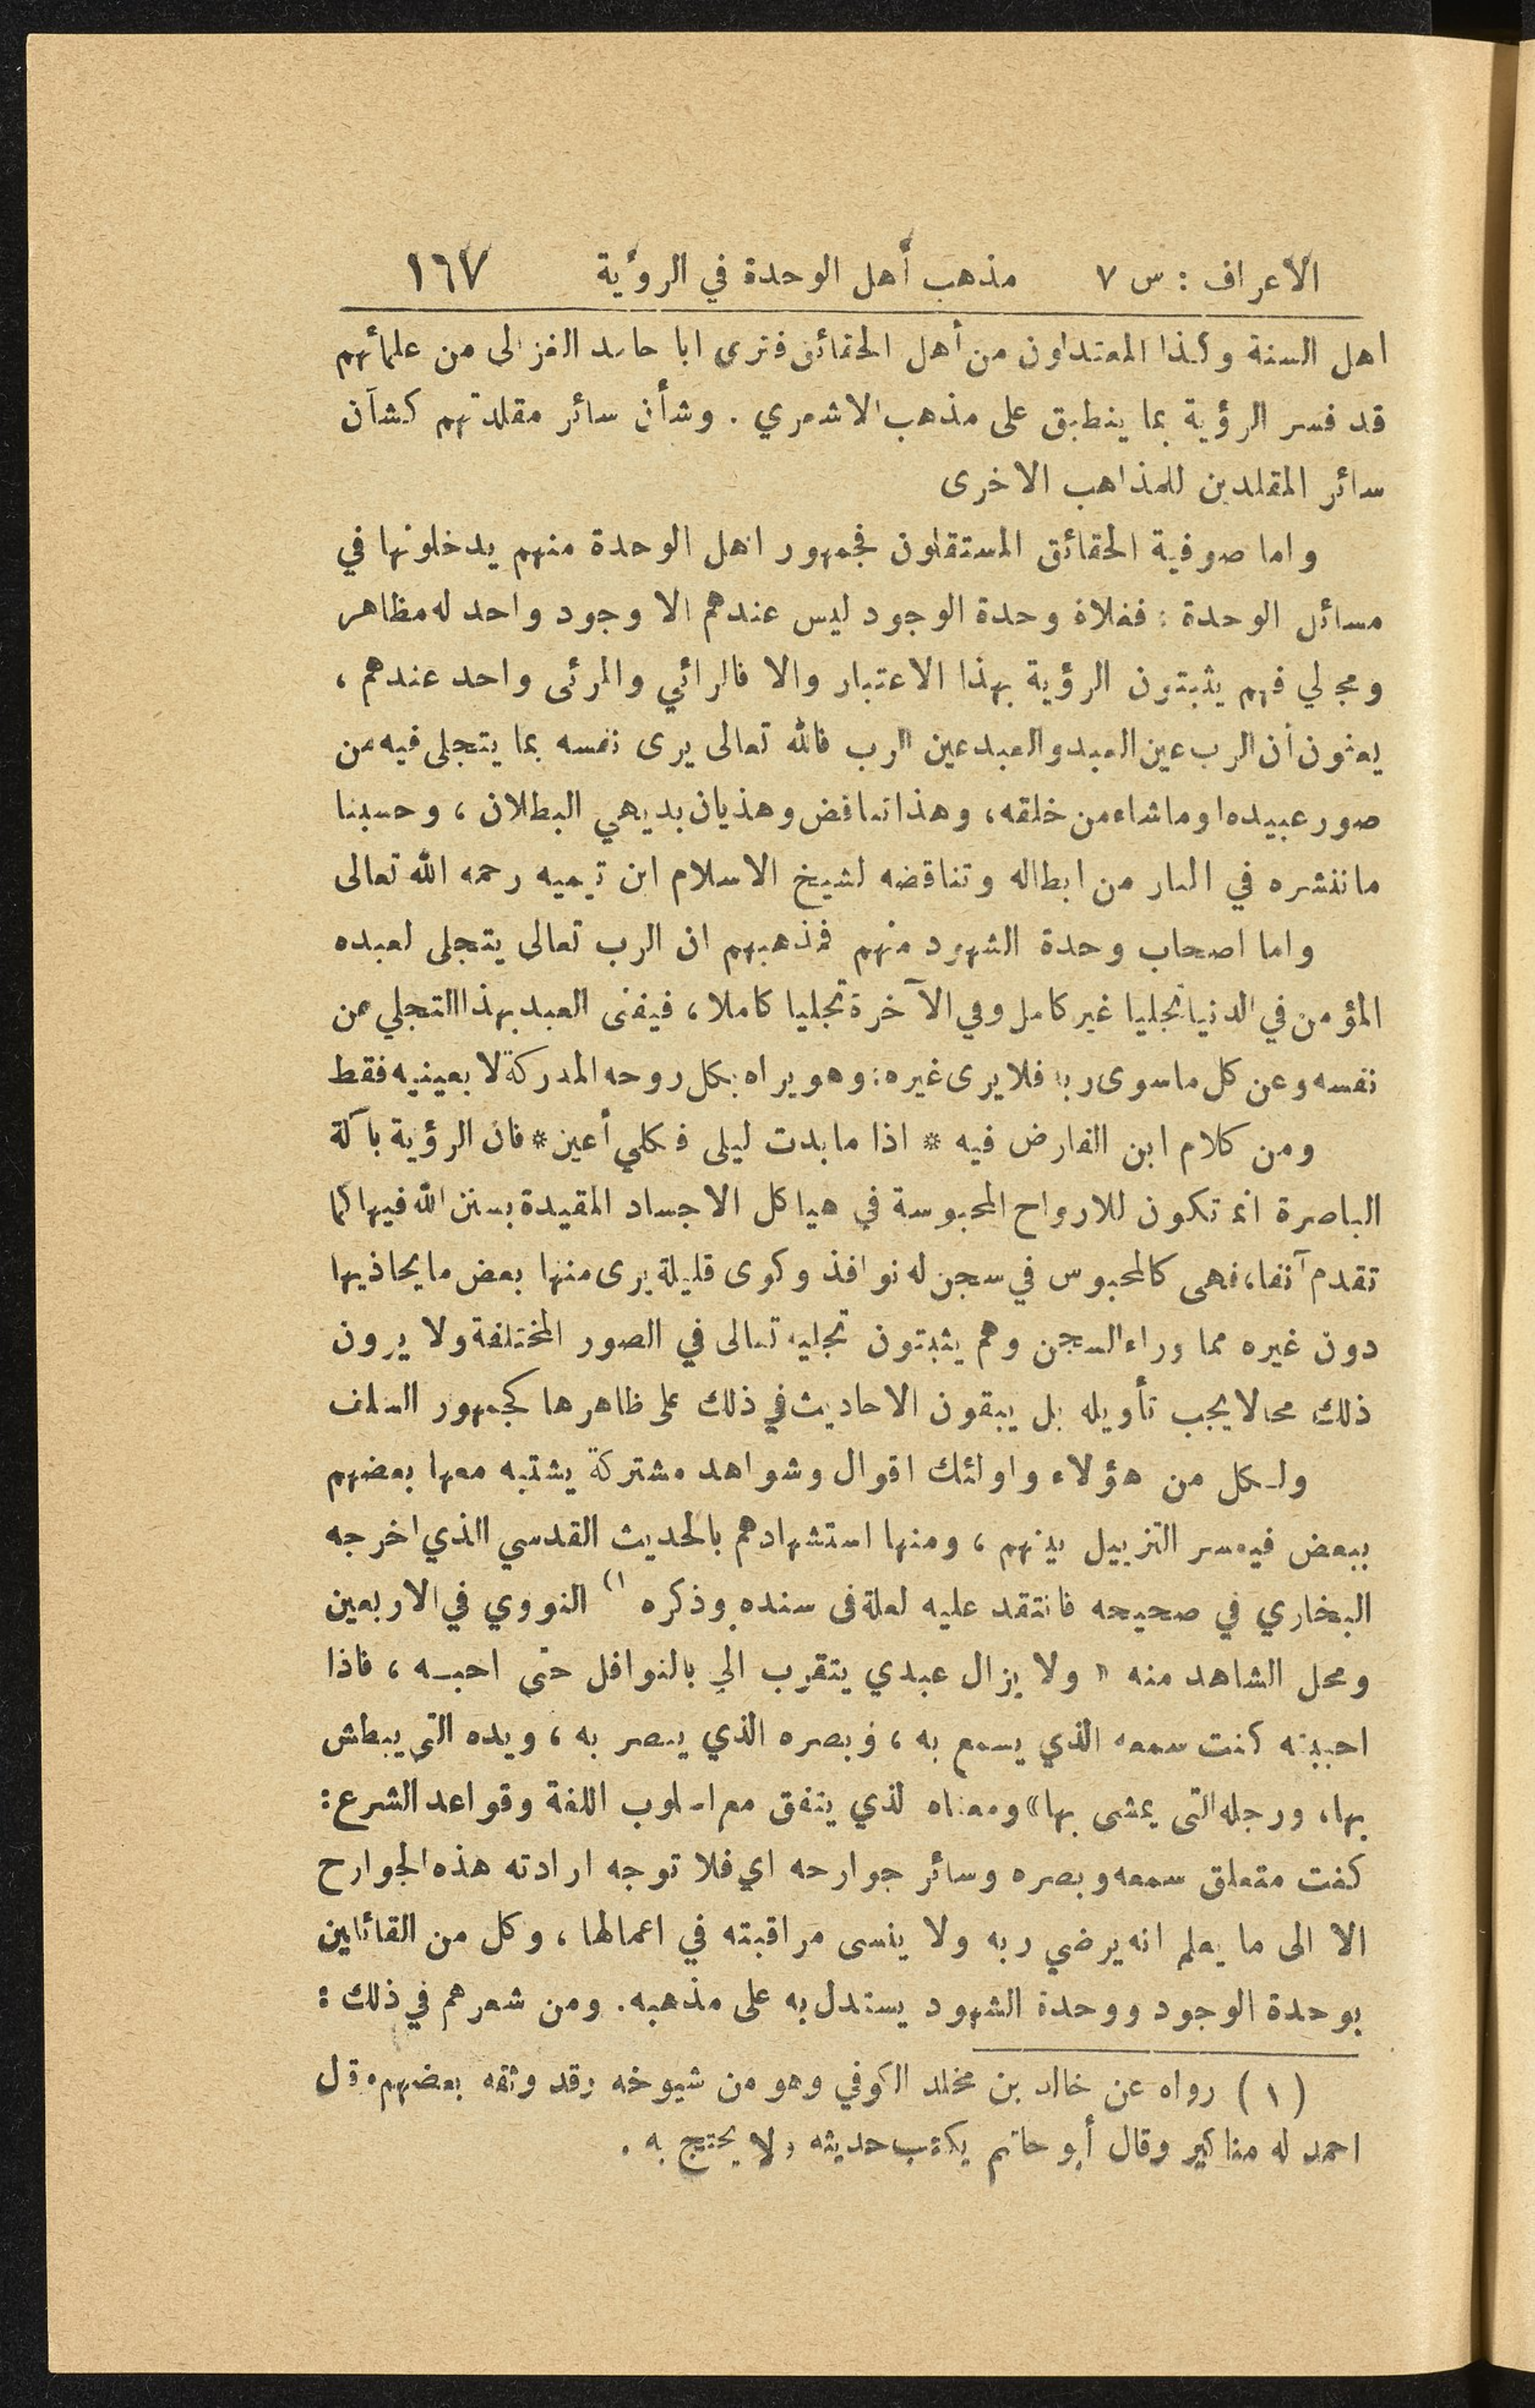 الاعراف : س ٧ مذهب أهل الوحدة في الرؤية ١٦٧
اهل السنة وكذا المعتدلون من أهل الحقائق فترى ابا حامد الغزالى من علمائهم
قد فسر الرؤية بما ينطبق على مذهب الاشعري . وشأن سائر مقلدتهم كشأن
سائر المقلدين للمذاهب الاخرى
واما صوفية الحقائق المستقلون فجمهور اهل الوحدة منهم يدخلونها في
مسائل الوحدة : فغلاة وحدة الوجود ليس عندهم الا وجود واحد له مظاهر
ومجالي فهم يثبتون الرؤية بهذا الاعتبار والا فالرائي والمرئى واحد عندهم ،
يعنون أن الرب عين العبد والعبد عين الرب فالله تعالى يرى نفسه بما يتجلى فيه من
صور عبيده او ما شاء من خلقه ، وهذا تناقض وهذيان بديهي البطلان ، وحسبنا
ما ننشره في المنار من ابطاله وتناقضه لشيخ الاسلام ابن تيميه رحمه الله تعالى
واما اصحاب وحدة الشهود منهم فمذهبهم ان الرب تعالى يتجلى لعبده
المؤمن في الدنيا تجليا غير كامل وفي الآخرة تجليا كاملا ، فيفنى العبد بهذا التجلي عن
نفسه وعن كل ما سوى ربه فلا يرى غيره : وهو يراه بكل روحه المدركة لا بعينيه فقط
ومن كلام ابن الفارض فيه * اذا ما بدت ليلى فكلي أعين * فان الرؤية بآلة
الباصرة انما تكون للارواح المحبوسة في هياكل الاجساد المقيدة بسنن الله فيها كما
تقدم آنفا ، فهى كالمحبوس في سجن له نوافذ وكوى قليلة يرى منها بعض ما يحاذيها
دون غيره مما وراء السجن وهم يثبتون تجليه تعالى في الصور المختلفة ولا يرون
ذلك محالا يجب تأويله بل يبقون الاحاديث في ذلك على ظاهرها كجمهور السلف
ولكل من هؤلاء واولئك اقوال وشواهد مشتركة يشتبه معها بعضهم
ببعض فيعسر التزييل بينهم ، ومنها استشهادهم بالحديث القدسي الذي اخرجه
البخاري في صحيحه فانتقد عليه لعلة فى سنده وذكره ١) النووي في الاربعين
ومحل الشاهد منه « ولا يزال عبدي يتقرب الي بالنوافل حتى احبه ، فاذا
احببته كنت سمعه الذي يسمع به ، وبصره الذي يبصر به ، ويده التى يبطش
بها ، ورجله التى يمشى بها » ومعناه الذي يتفق مع اسلوب اللغة وقواعد الشرع :
كنت متعلق سمعه وبصره وسائر جوارحه اي فلا توجه ارادته هذه الجوارح
الا الى ما يعلم انه يرضي ربه ولا ينسى مراقبته في اعمالها ، وكل من القائلين
بوحدة الوجود ووحدة الشهود يستدل به على مذهبه . ومن شعرهم في ذلك :
( ١ ) رواه عن خالد بن مخلد الكوفي وهو من شيوخه وقد وثقه بعضهم وقال
احمد له مناكير وقال أبو حاتم يكتب حديثه ولا يحتج به .